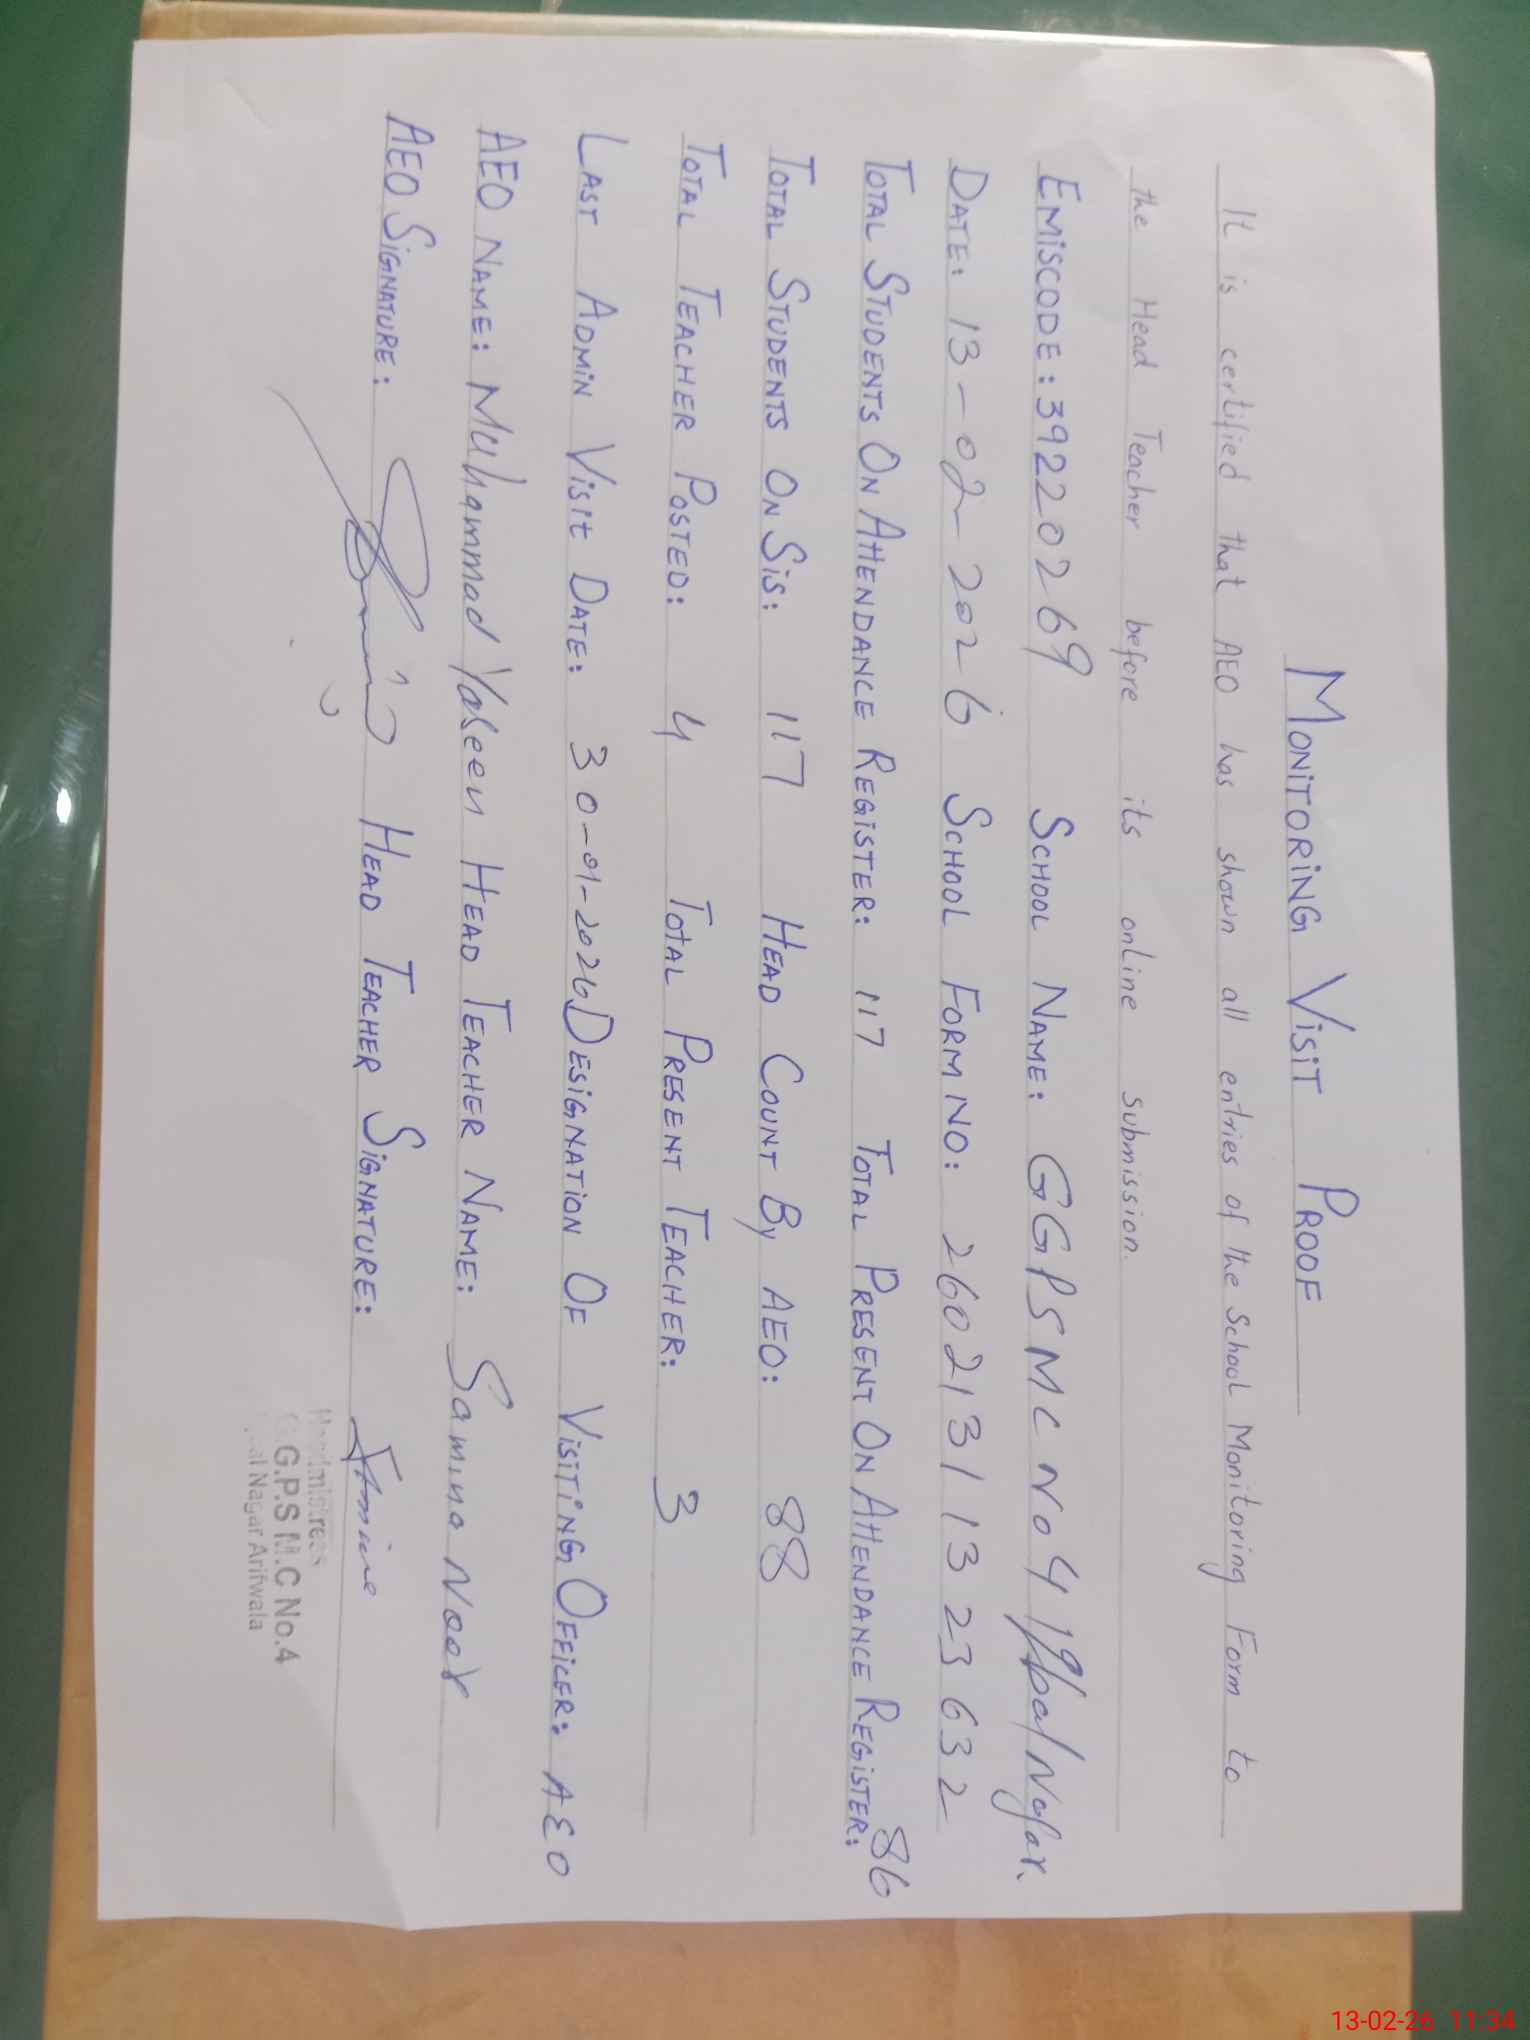 MONITORING VISIT PROOF
It is certified that AEO has shown all entries of the School Monitoring Form to
the Head Teacher before its online submission.
EMISCODE: 39220269 SCHOOL NAME: GGPS MC No 4 Iqbal Nagar
DATE: 13-02-2026 SCHOOL FORM NO: 26021311323632
TOTAL STUDENTS ON ATTENDANCE REGISTER: 117 TOTAL PRESENT ON ATTENDANCE REGISTER: 86
TOTAL STUDENTS ON SIS: 117 HEAD COUNT BY AEO: 88
TOTAL TEACHER POSTED: 4 TOTAL PRESENT TEACHER: 3
LAST ADMIN VISIT DATE: 30-01-2026 DESIGNATION OF VISITING OFFICER: AEO
AEO NAME: Muhammad Yaseen HEAD TEACHER NAME: Samina Noor
AEO SIGNATURE: HEAD TEACHER SIGNATURE:
Headmistress
G.P.S M.C No.4
Nagar Arifwala
13-02-26 11:34